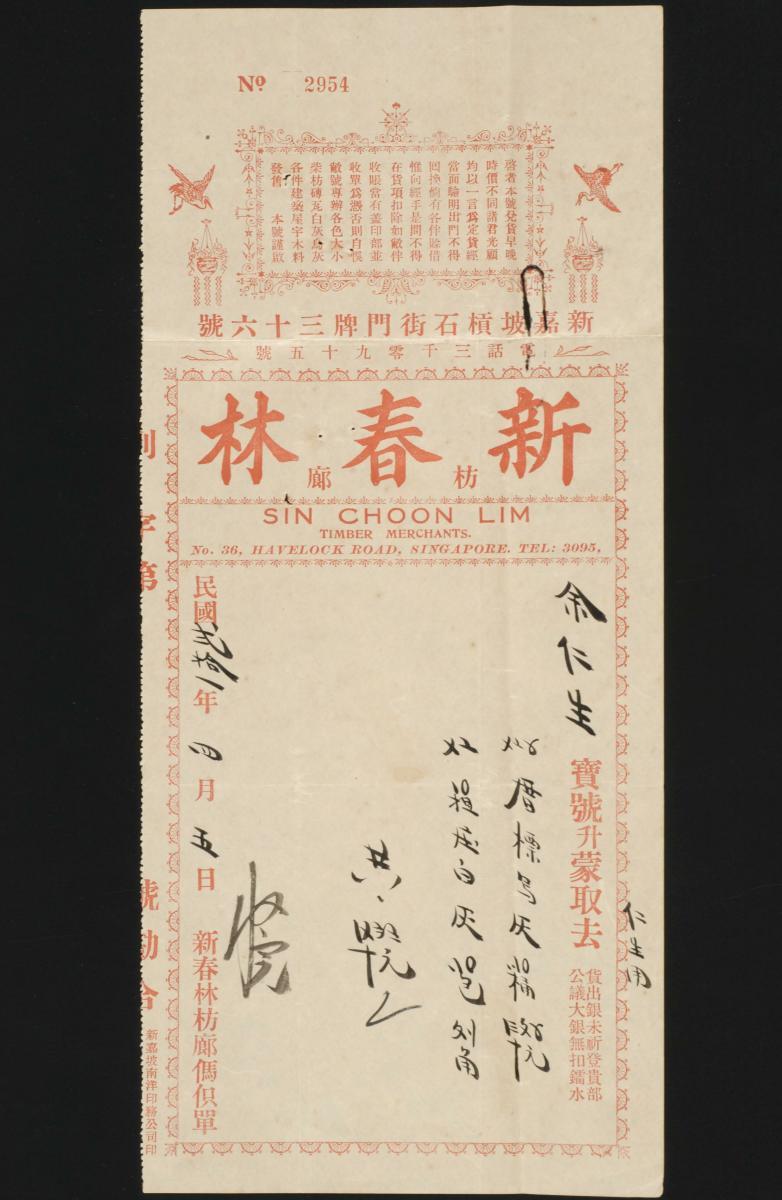 No 2954
啓者本號兌貨早晚
時價不同諸君光顧
均以一言為定貨經
當面驗明出門不得
回換倘有各伴賒借
惟向經手是問不得
在貨項扣除如敝伴
收賬當有蓋印部並
收單為憑否則自悞
敝號專辦各色大小
柴枋磚瓦白灰烏灰
各件建築屋宇木料
發售 本號謹啟
新嘉坡槓石街門牌三十六號
電話三千零九十五號
新春林
枋廊
SIN CHOON LIM
TIMBER MERCHANTS.
No. 36, HAVELOCK ROAD, SINGAPORE. TEL: 3095,
余仁生 寶號升蒙取去
貨出銀未祈登貴部
公議大銀無扣鐳水
仁生用
烏灰
白灰
共
民國貳拾一年四月五日 新春林枋廊傌俱單
字第 號勘合
新嘉坡南洋印務公司印